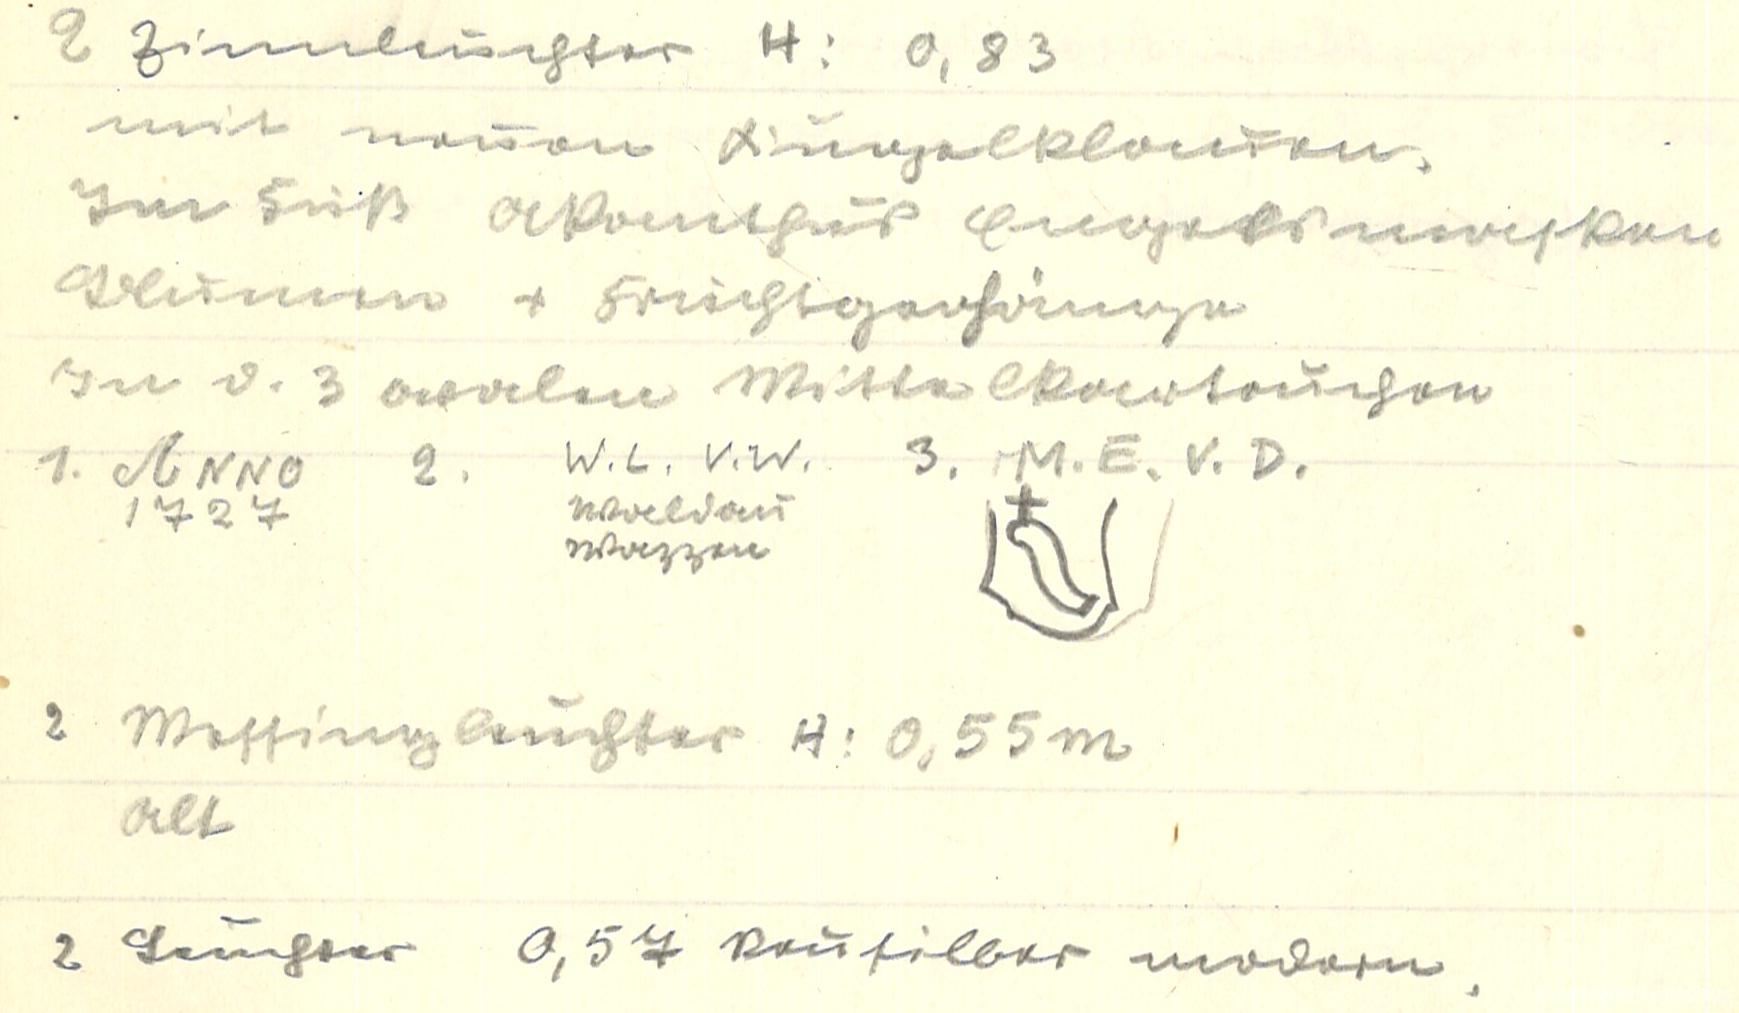 2 Zinnleuchter H: 0,83
mit neuen Kugelklauen.
Im Fuß Akanthus Engelsmasken
Blumen + Fruchtgehänge
In d. 3 ovalen Mittelkartuschen
1. ANNO 2. W.L. V.W. 3. M.E.V.D.
1727 Waldau
Wappen
2 Messingleuchter H: 0,55 m
alt
2 Leuchter 0,57 Neusilber modern.